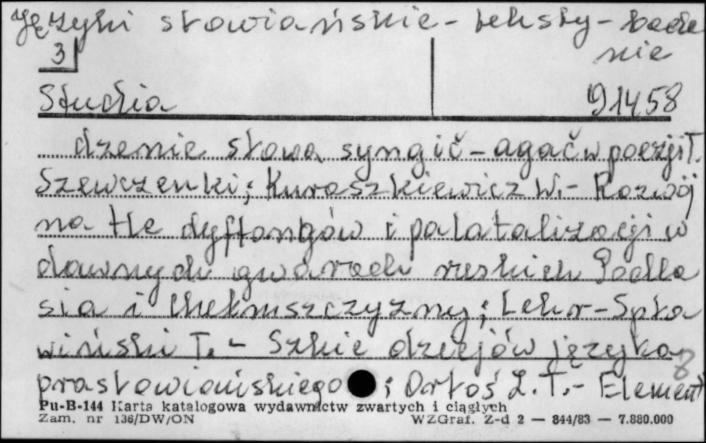 Języki słowiańskie - teksty - bada
nie
3
Studia 91458
dzenie słowa syngič - agač w poezji T.
Szewczenki; Kuraszkiewicz W. - Rozwój
na tle dyftongów i palatalizacji w
dawnych gwarach ruskich Podla
sia i Chełmszczyzny; Lehr-Spła
wiński T. - Szkic dziejów języka
prasłowiańskiego; Bartoś L. T. - Element
8
Pu-B-144 Karta katalogowa wydawnictw zwartych i ciągłych
Zam. nr 136/DW/ON WZGraf. Z-d 2 — 844/83 — 7.880.000